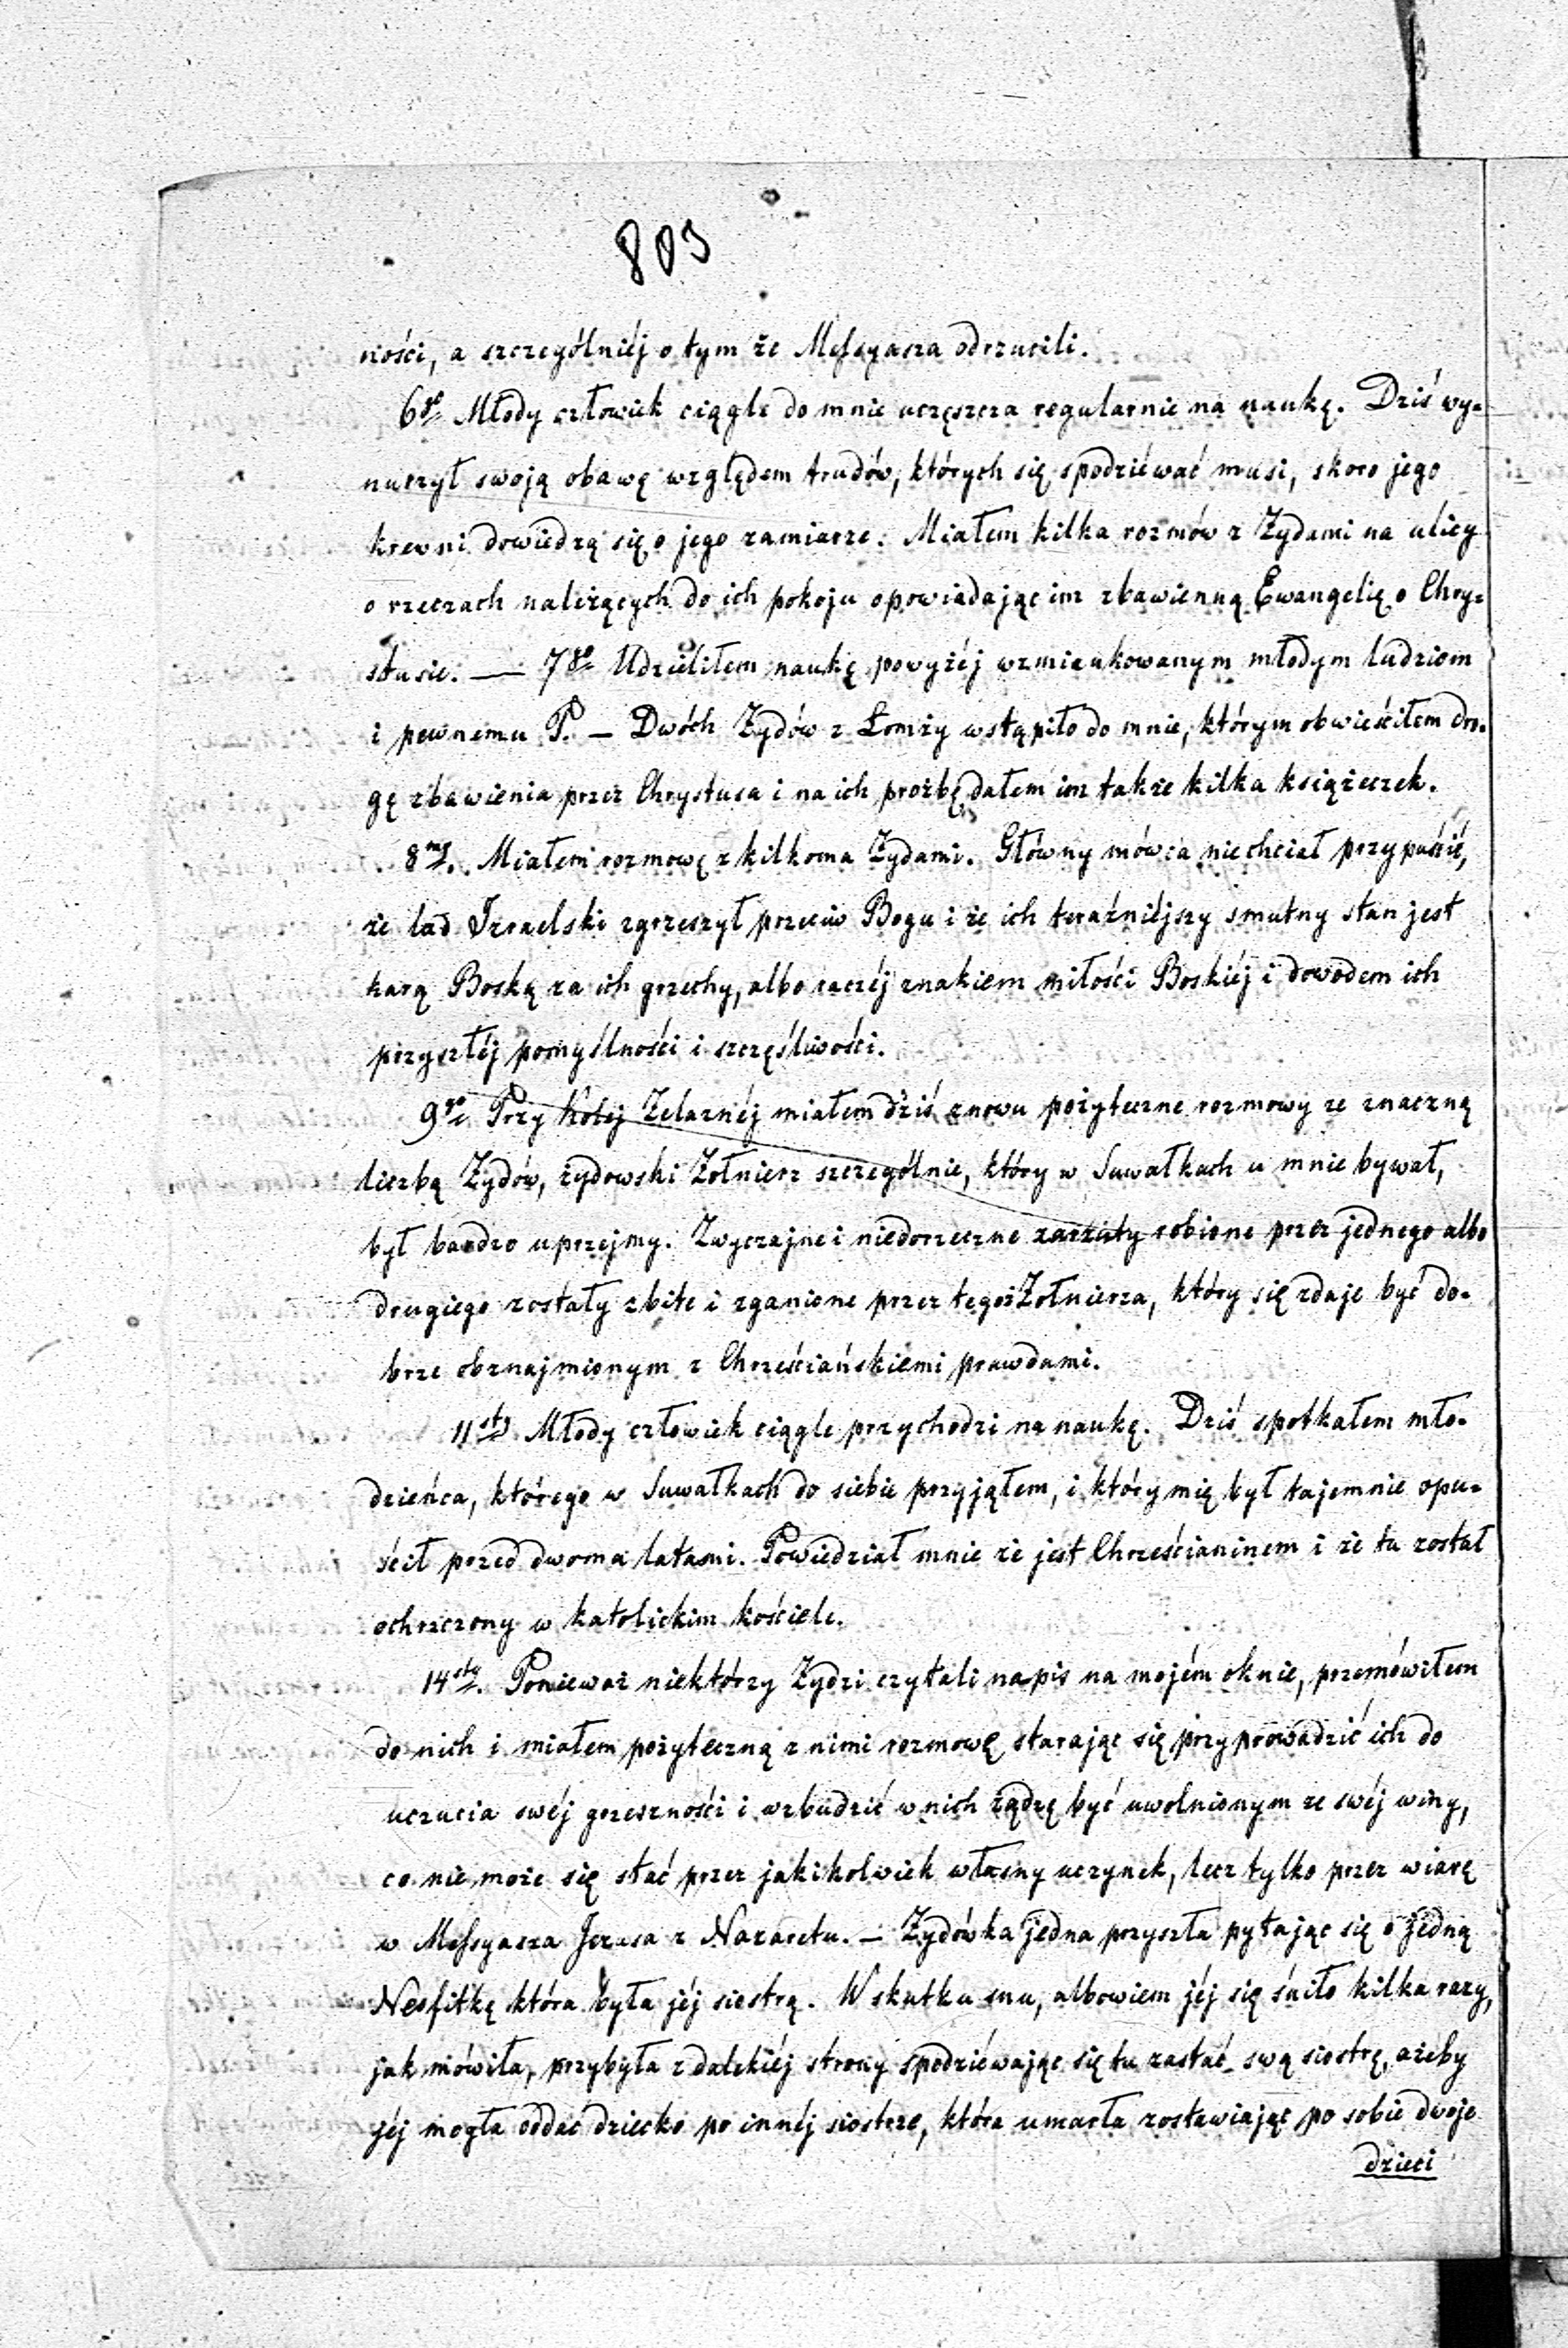 803
ności, a szczególniéj o tym że Meſsyasza odrzucili.
6go Młody człowiek ciągle do mnie uczęszcza regularnie na naukę. Dziś wy-
nurzył swoją obawę względem trudów, których się spodziéwać musi, skoro jego
krewni dowiedzą się o jego zamiarze. Miałem kilka rozmów z Żydami na ulicy
o rzeczach należących do ich pokoju opowiadając im zbawienną Ewangelię o Chry-
stusie. — 7go Udzieliłem naukę powyżéj wzmiankowanym młodym ludziom
i pewnemu P. — Dwóch Żydów z Łomży wstąpiło do mnie, którym obwieściłem dro-
gę zbawienia przez Chrystusa i na ich prożbę dałem im także kilka książeczek.
8my. Miałem rozmowę z kilkoma Żydami. Główny mówca niechciał przypuścić,
że lud Izraelski zgrzeszył przeciw Bogu i że ich teraźniéjszy smutny stan jest
karą Boską za ich grzechy, albo raczéj znakiem miłości Boskiéj i dowodem ich
przyszłéj pomyślności i szczęśliwości.
9go Przy Kolej Żelaznéj miałem dziś znowu pożyteczne rozmowy ze znaczną
liczbą Żydów, żydowski Żołnierz szczególnie, który w Suwałkach u mnie bywał,
był bardzo uprzejmy. Zwyczajne i niedorzeczne zarzuty robione przez jednego albo
drugiego zostały zbite i zganione przez tegoż Żołnierza, który się zdaje być do-
brze obznajmionym z Chrześciańskiemi prawdami.
11sty Młody człowiek ciągle przychodzi na naukę. Dziś spotkałem mło-
dzieńca, którego w Suwałkach do siebie przyjąłem, i który mię był tajemnie opu-
ścił przed dwoma latami. Powiedział mnie że jest Chrześcianinem i że tu został
ochrzczony w katolickim kościele.
14sty. Ponieważ niektórzy Żydzi czytali napis na mojém oknie, przemówiłem
do nich i miałem pożyteczną z nimi rozmowę starając się przyprowadzić ich do
uczucia swéj grzeszności i wzbudzić w nich żądzę być uwolnionym ze swéj winy,
co nie może się stać przez jakikolwiek własny uczynek, lecz tylko przez wiarę
w Meſsyasza Jezusa z Nazaretu. — Żydówka jedna przyszła pytając się o jedną
Neofitkę która była jéj siostrą. W skutku snu, albowiem jéj się śniło kilka razy,
jak mówiła, przybyła z dalekiéj strony spodziéwając się tu zastać swą siostrę, ażeby
jéj mogła oddać dziecko po innéj siostrze, która umarła zostawiając po sobie dwoje
dzieci